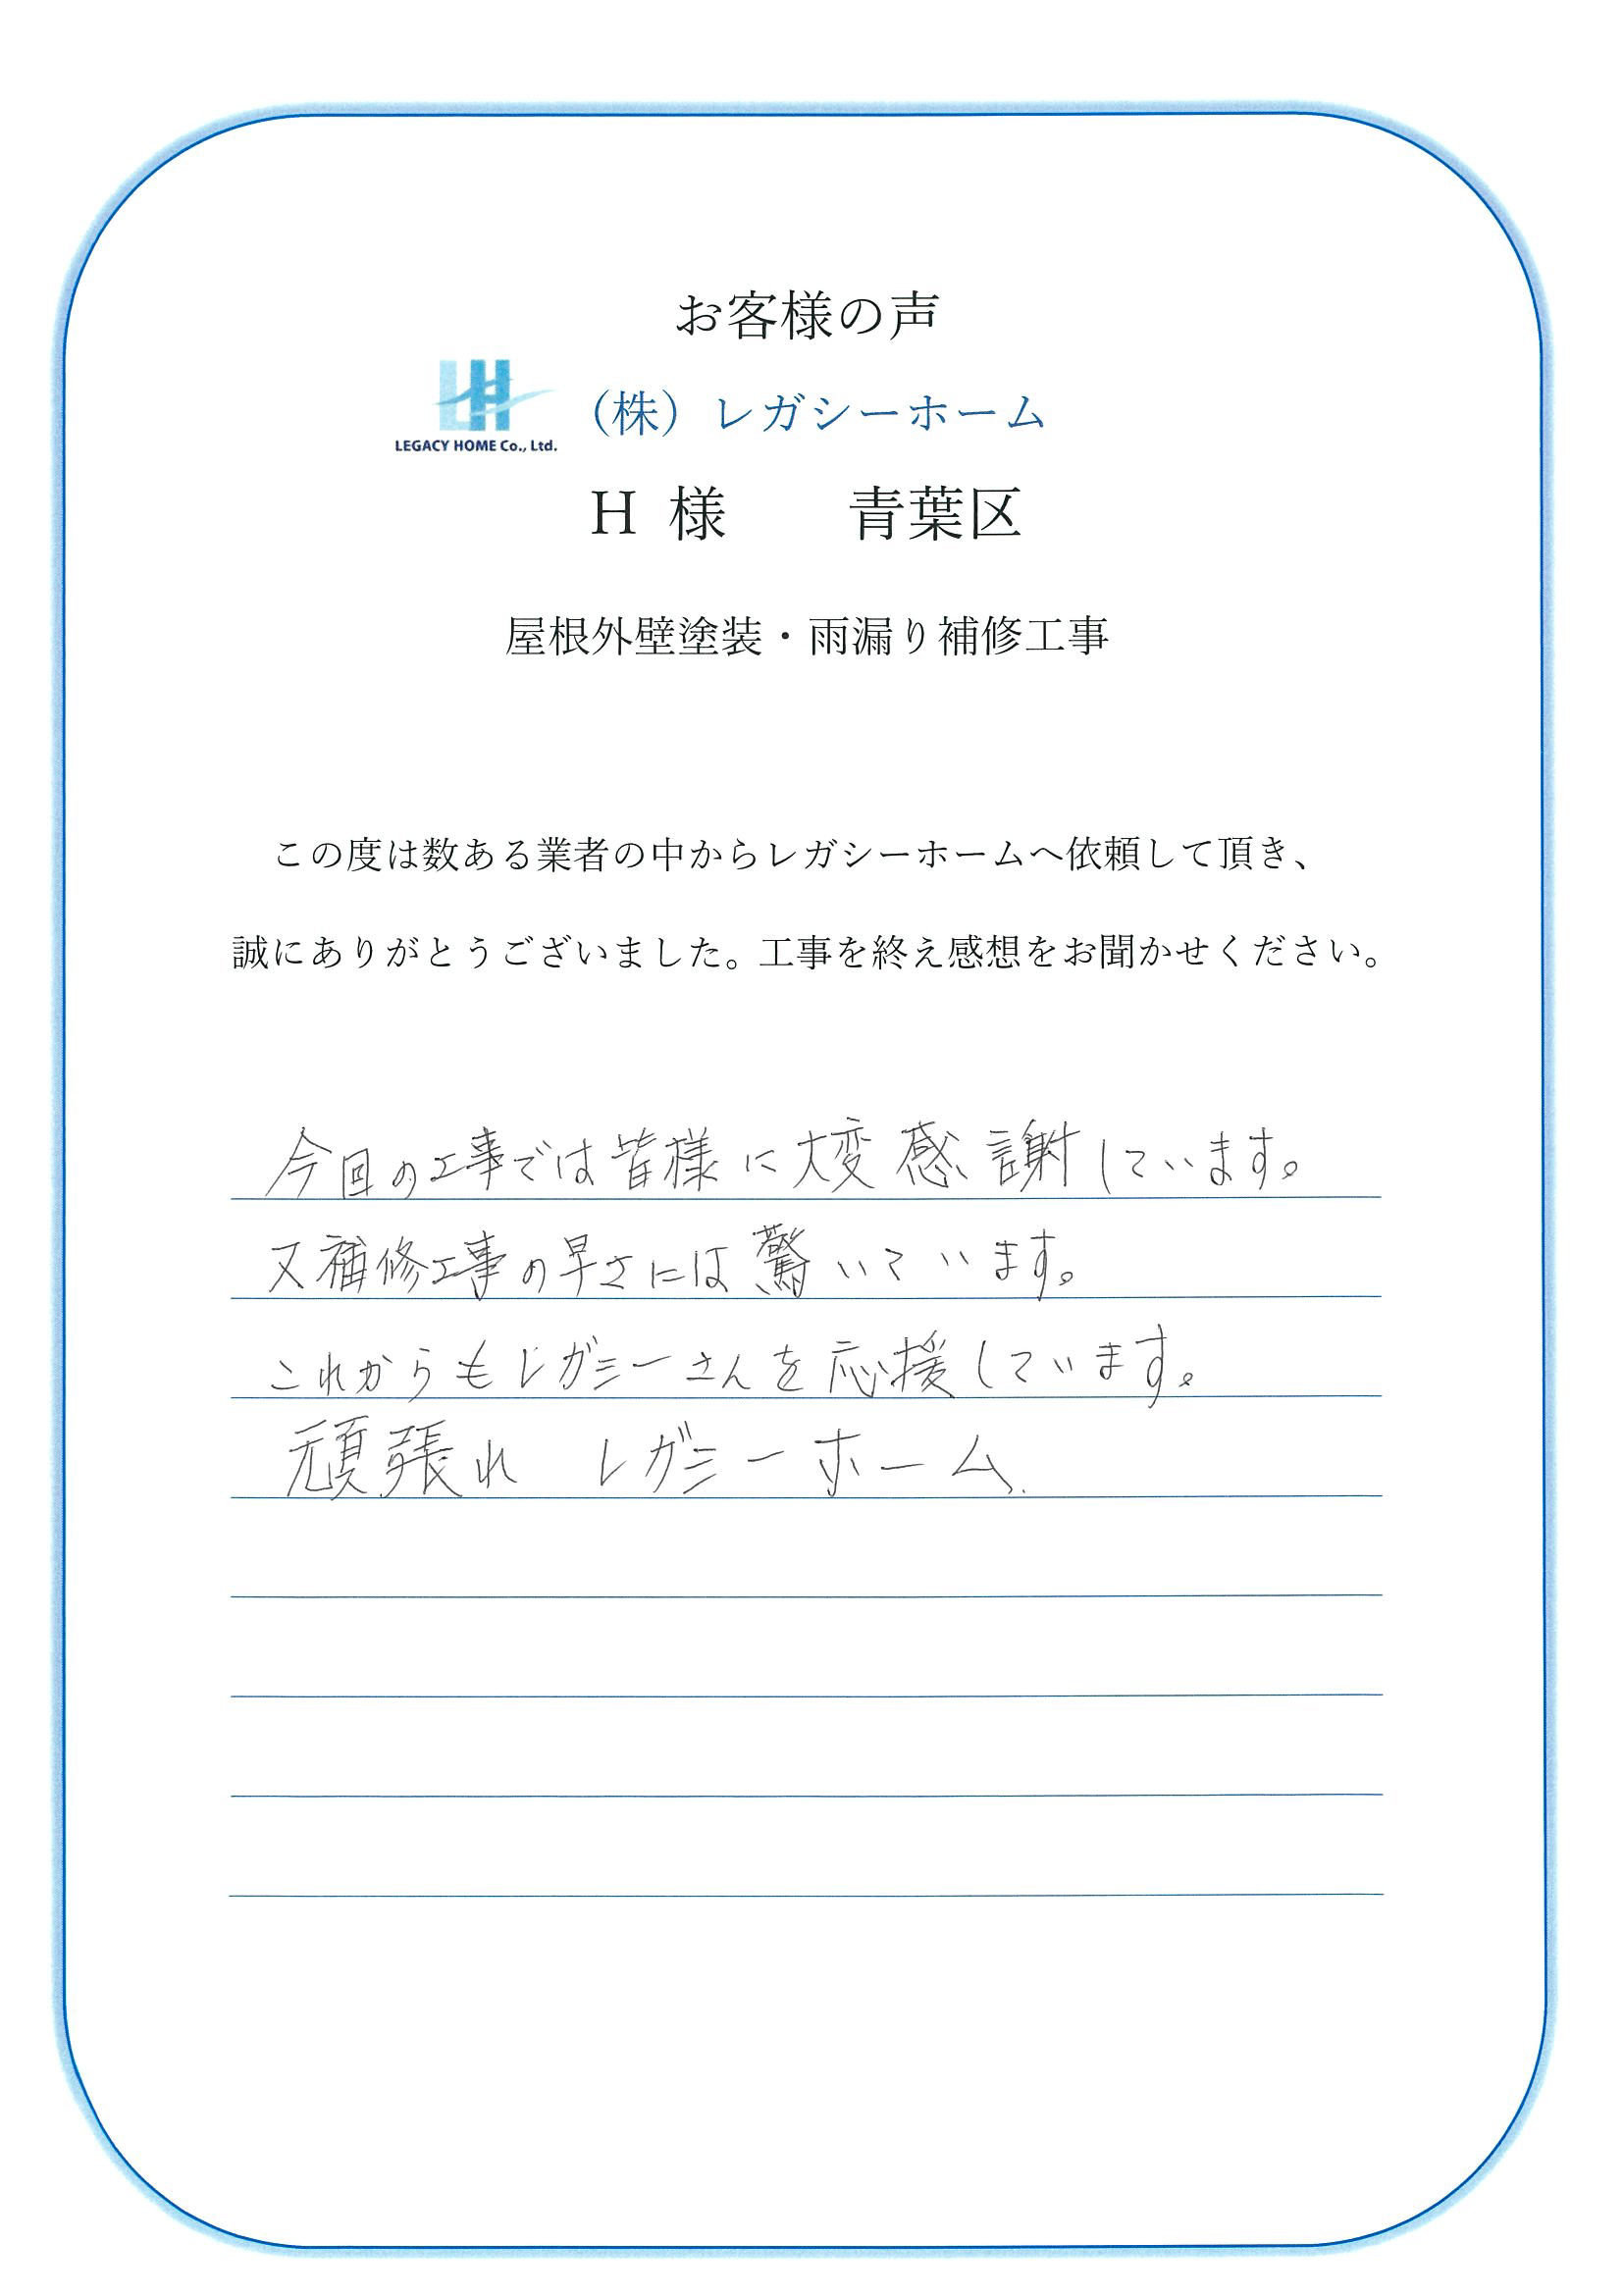 お客様の声
LH
LEGACY HOME Co., Ltd.
（株）レガシーホーム
H 様　　青葉区
屋根外壁塗装・雨漏り補修工事
この度は数ある業者の中からレガシーホームへ依頼して頂き、
誠にありがとうございました。工事を終え感想をお聞かせください。
今回の工事では皆様に大変感謝しています。
又補修工事の早さには驚いています。
これからもレガシーさんを応援しています。
頑張れ　レガシーホーム.